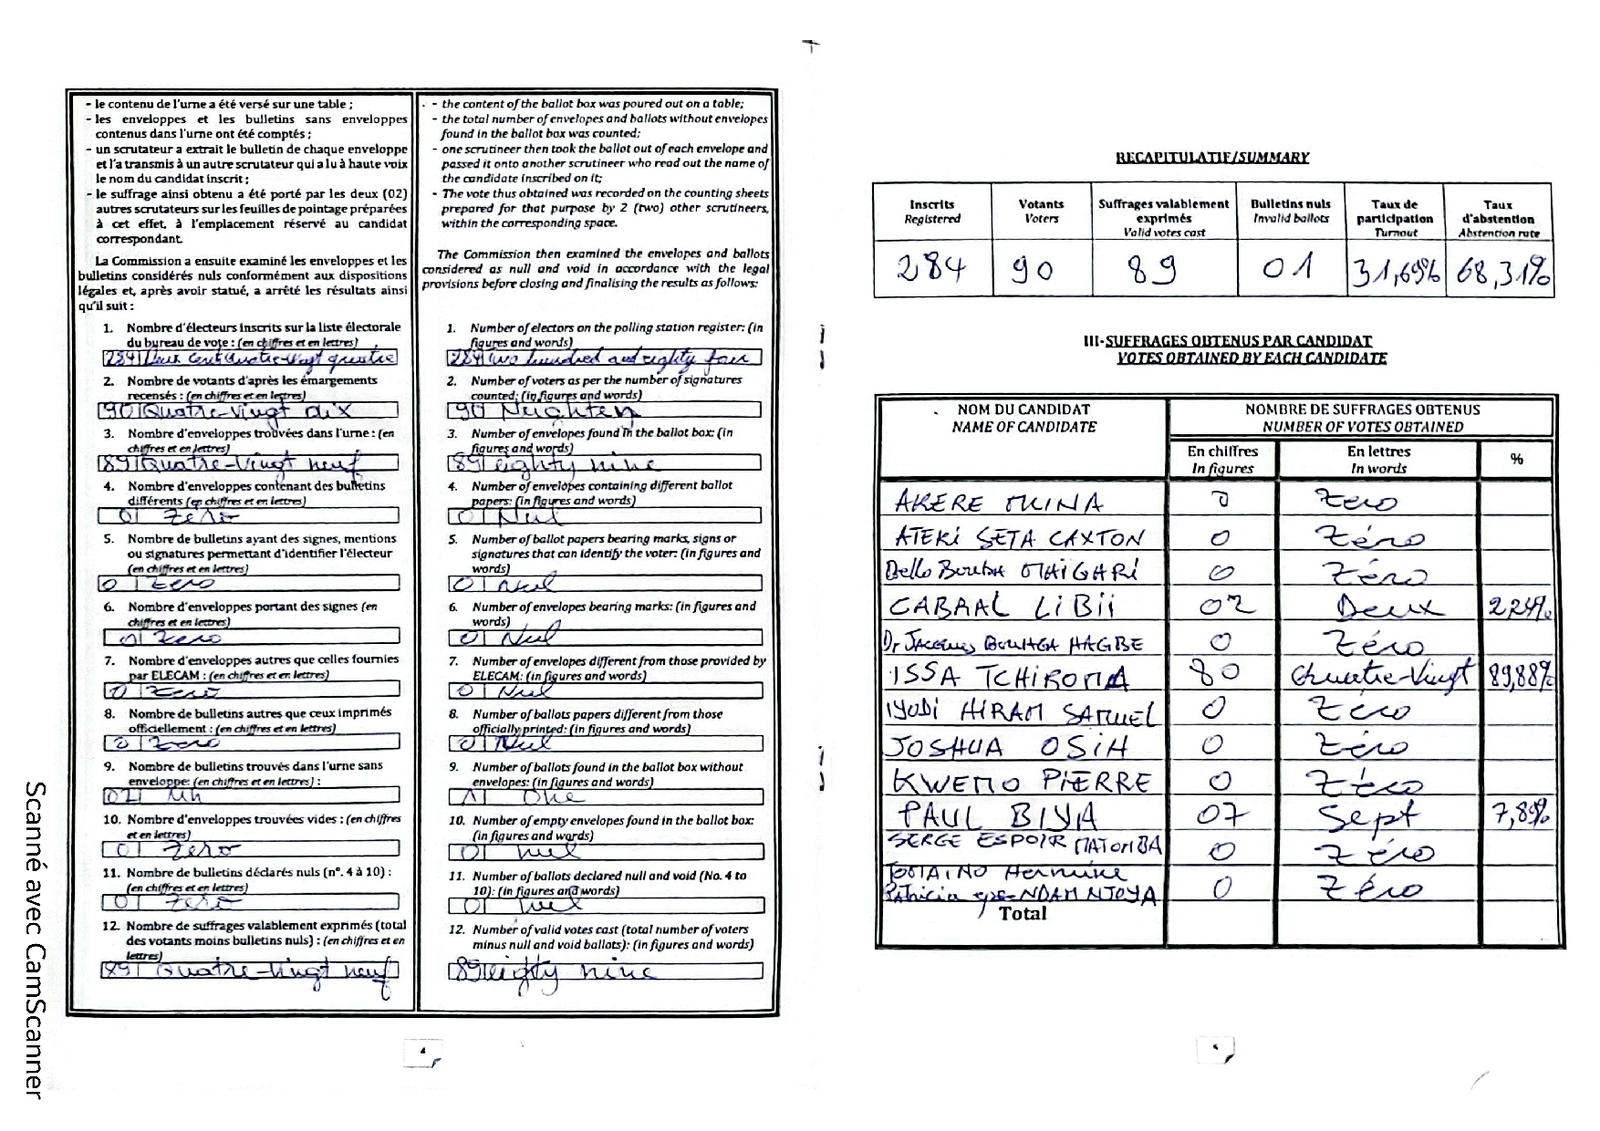 - le contenu de l'urne a été versé sur une table ;
- les enveloppes et les bulletins sans enveloppes
contenus dans l'urne ont été comptés ;
- un scrutateur a extrait le bulletin de chaque enveloppe
et l'a transmis à un autre scrutateur qui a lu à haute voix
le nom du candidat inscrit ;
- le suffrage ainsi obtenu a été porté par les deux (02)
autres scrutateurs sur les feuilles de pointage préparées
à cet effet, à l'emplacement réservé au candidat
correspondant.
La Commission a ensuite examiné les enveloppes et les
bulletins considérés nuls conformément aux dispositions
légales et, après avoir statué, a arrêté les résultats ainsi
qu'il suit :
1. Nombre d'électeurs inscrits sur la liste électorale
du bureau de vote : (en chiffres et en lettres)
284 Deux cent quatre-vingt quatre
2. Nombre de votants d'après les émargements
recensés : (en chiffres et en lettres)
90 Quatre-vingt dix
3. Nombre d'enveloppes trouvées dans l'urne : (en
chiffres et en lettres)
89 Quatre-Vingt neuf
4. Nombre d'enveloppes contenant des bulletins
différents (en chiffres et en lettres)
0 Zero
5. Nombre de bulletins ayant des signes, mentions
ou signatures permettant d'identifier l'électeur
(en chiffres et en lettres)
0 Zero
6. Nombre d'enveloppes portant des signes (en
chiffres et en lettres)
0 Zero
7. Nombre d'enveloppes autres que celles fournies
par ELECAM : (en chiffres et en lettres)
0 Zero
8. Nombre de bulletins autres que ceux imprimés
officiellement : (en chiffres et en lettres)
0 Zero
9. Nombre de bulletins trouvés dans l'urne sans
enveloppe: (en chiffres et en lettres) :
01 un
10. Nombre d'enveloppes trouvées vides : (en chiffres
et en lettres)
0 Zero
11. Nombre de bulletins déclarés nuls (n°. 4 à 10) :
(en chiffres et en lettres)
0 Zero
12. Nombre de suffrages valablement exprimés (total
des votants moins bulletins nuls) : (en chiffres et en
lettres)
89 Quatre-vingt neuf
4
- the content of the ballot box was poured out on a table;
- the total number of envelopes and ballots without envelopes
found in the ballot box was counted;
- one scrutineer then took the ballot out of each envelope and
passed it onto another scrutineer who read out the name of
the candidate inscribed on it;
- The vote thus obtained was recorded on the counting sheets
prepared for that purpose by 2 (two) other scrutineers,
within the corresponding space.
The Commission then examined the envelopes and ballots
considered as null and void in accordance with the legal
provisions before closing and finalising the results as follows:
1. Number of electors on the polling station register: (in
figures and words)
284 two hundred and eighty four
2. Number of voters as per the number of signatures
counted: (in figures and words)
90 Neighten
3. Number of envelopes found in the ballot box: (in
figures and words)
89 eighty nine
4. Number of envelopes containing different ballot
papers: (in figures and words)
0 Nul
5. Number of ballot papers bearing marks, signs or
signatures that can identify the voter: (in figures and
words)
0 Nul
6. Number of envelopes bearing marks: (in figures and
words)
0 Nul
7. Number of envelopes different from those provided by
ELECAM: (in figures and words)
0 Nul
8. Number of ballots papers different from those
officially printed: (in figures and words)
0 Nul
9. Number of ballots found in the ballot box without
envelopes: (in figures and words)
1 One
10. Number of empty envelopes found in the ballot box:
(in figures and words)
0 nul
11. Number of ballots declared null and void (No. 4 to
10): (in figures and words)
0 nul
12. Number of valid votes cast (total number of voters
minus null and void ballots): (in figures and words)
89 eighty nine
RECAPITULATIF/SUMMARY
Inscrits Registered | Votants Voters | Suffrages valablement exprimés Valid votes cast | Bulletins nuls Invalid ballots | Taux de participation Turnout | Taux d'abstention Abstention rate
284 90 89 01 31,69% 68,31%
III-SUFFRAGES OBTENUS PAR CANDIDAT
VOTES OBTAINED BY EACH CANDIDATE
NOM DU CANDIDAT NOMBRE DE SUFFRAGES OBTENUS
NAME OF CANDIDATE NUMBER OF VOTES OBTAINED
En chiffres En lettres %
In figures In words
AKERE MUNA 0 Zero
ATEKI SETA CAXTON 0 Zéro
Bello Bouba MAIGARI 0 Zéro
CABRAL LIBII 02 Deux 2,24%
Dr Jacques BOUHGA HAGBE 0 Zéro
ISSA TCHIROMA 80 Quatre-Vingt 89,88%
IYODI HIRAM SAMUEL 0 Zéro
JOSHUA OSIH 0 Zéro
KWEMO PIERRE 0 Zéro
PAUL BIYA 07 Sept 7,86%
SERGE ESPOIR MATOMBA 0 Zéro
TOMAINO Hermine
Patricia epse NDAM NJOYA 0 Zéro
Total
Scanné avec CamScanner